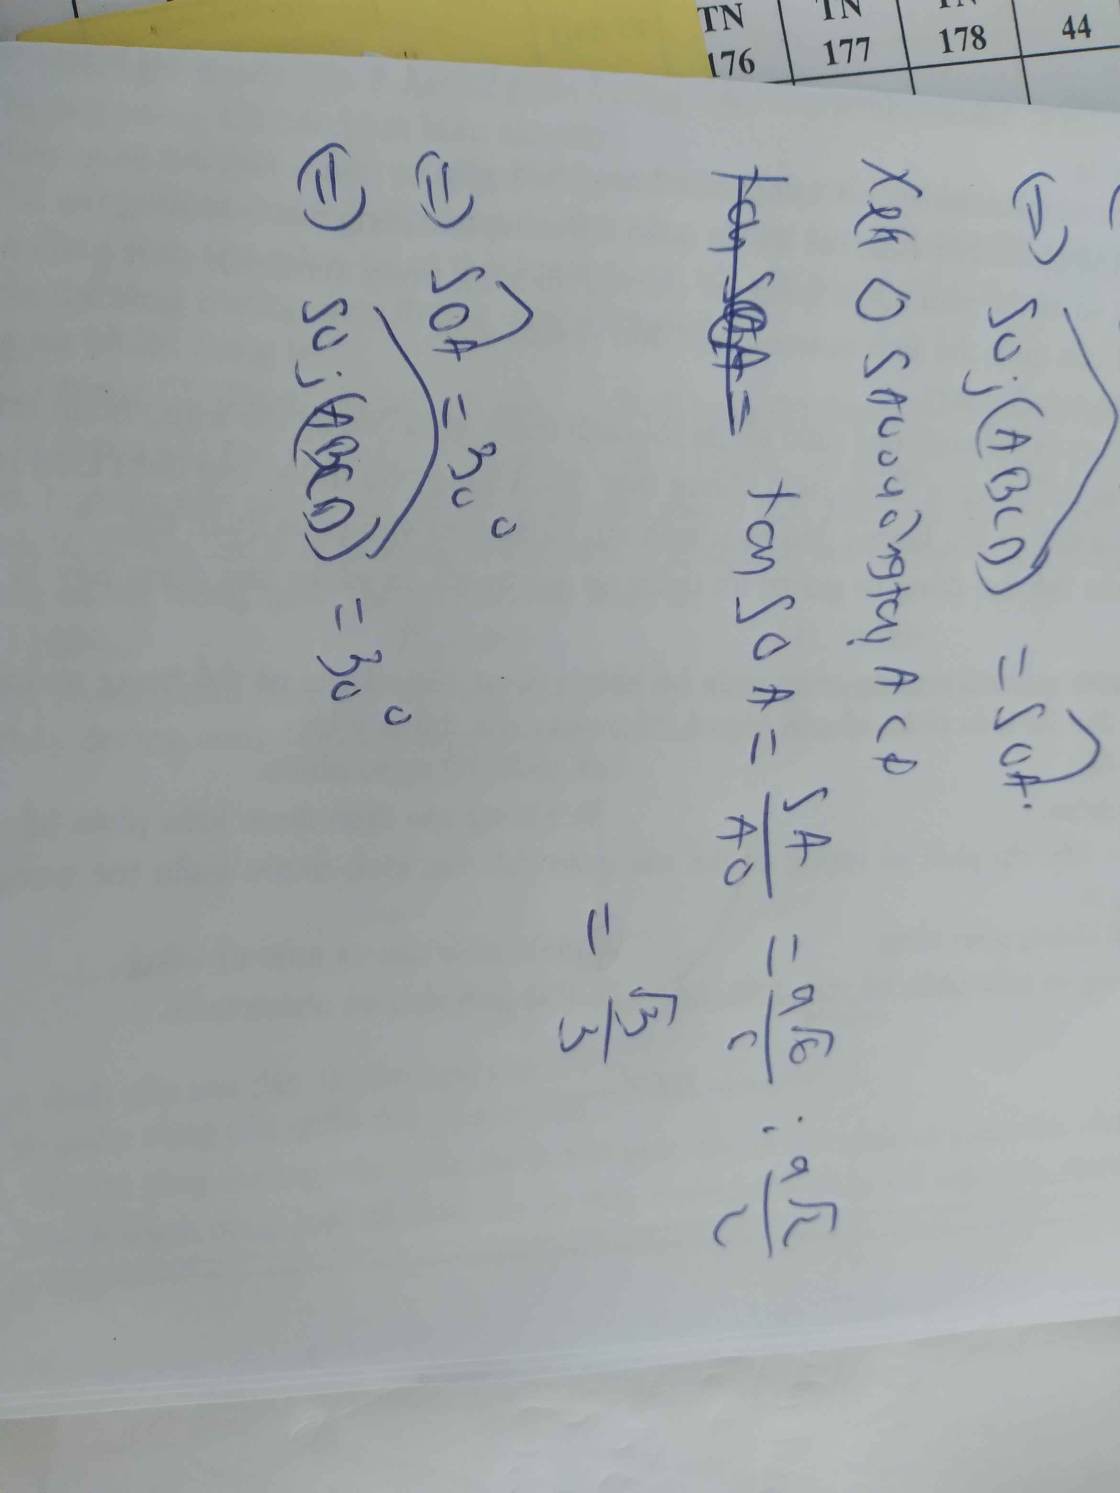 TN TN TN
176 177 178 44
=) SO; (ABCD) = SOA.
Xét Δ SAO vuông tại A có
tan SOA =
tan SOA = SA/AO = a√6/6 : a√2/2
= √3/3
=) SOA = 30°
=) SO; (ABCD) = 30°